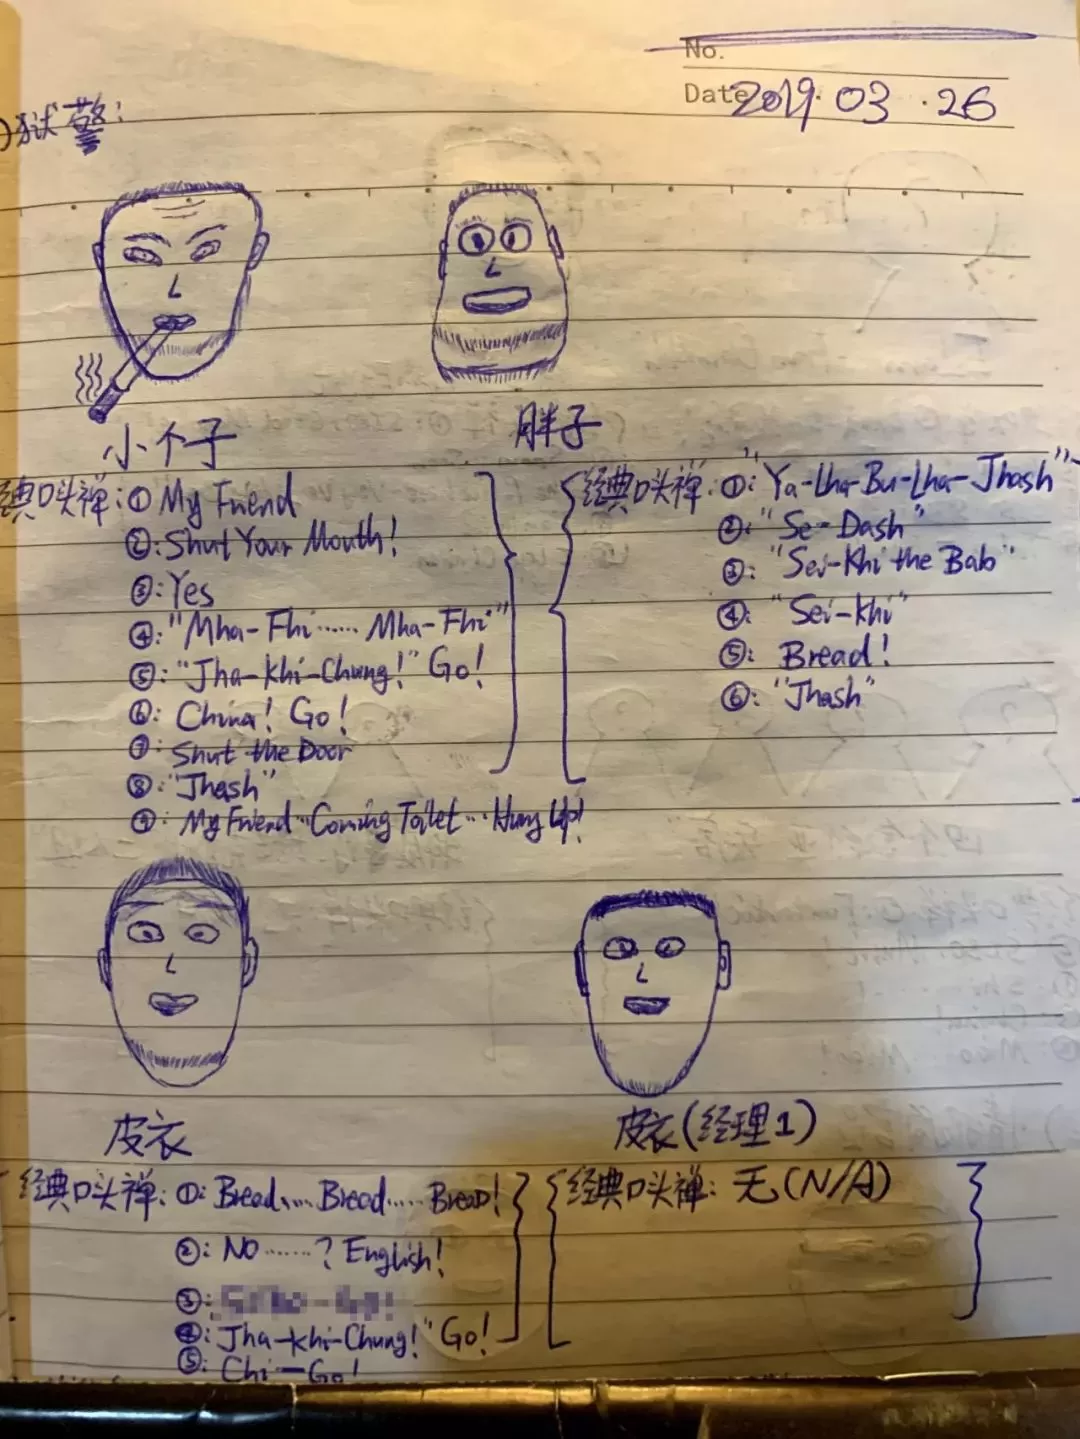 No.
Date 2019.03.26
)狱警:
小个子
胖子
经典口头禅: ① My Friend
②: Shut Your Mouth!
③: Yes
④: "Mha-Fhi...... Mha-Fhi"
⑤: "Jha-khi-Chung!" Go!
⑥: China! Go!
⑦: Shut the Door
⑧: "Jhash"
⑨: My Friend...Coming Toilet...Hung Up!
经典口头禅: ①: "Ya-Lha-Bu-Lha-Jhash"
②: "Se-Dash"
③: "Sei-Khi the Bab"
④: "Sei-khi"
⑤: Bread!
⑥: "Jhash"
皮衣
皮衣(经理1)
经典口头禅: ①: Bread..... Bread..... Bread!
②: NO ......? English!
③:
④: Jha-khi-Chung!" Go!
⑤: Chi—Go!
经典口头禅: 无(N/A)